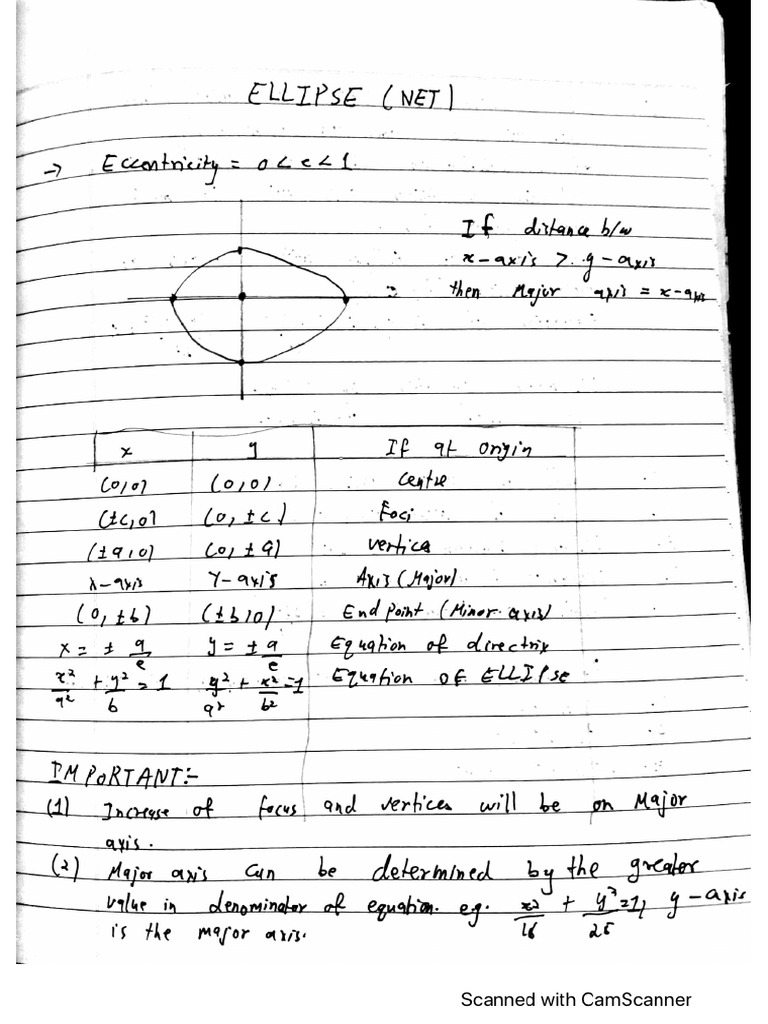 ELLIPSE (NET)
→ Eccentricity = 0 < e < 1.
If distance b/w
x-axis > y-axis
then Major axis = x-axis
x y If at origin
(0,0) (0,0) Centre
(±c,0) (0,±c) Foci
(±a,0) (0,±a) vertice
x-axis Y-axis Axis (Major)
(0,±b) (±b,0) End point (Minor axis)
x = ± a/e y = ± a/e Equation of directrix
x²/a² + y²/b = 1 y²/a² + x²/b² = 1 Equation OF ELLIPSE
IMPORTANT:-
(1) Increase of focus and vertices will be on Major
axis.
(2) Major axis can be determined by the greater
value in denominator of equation. e.g. x²/16 + y²/25 = 1, y-axis
is the major axis.
Scanned with CamScanner